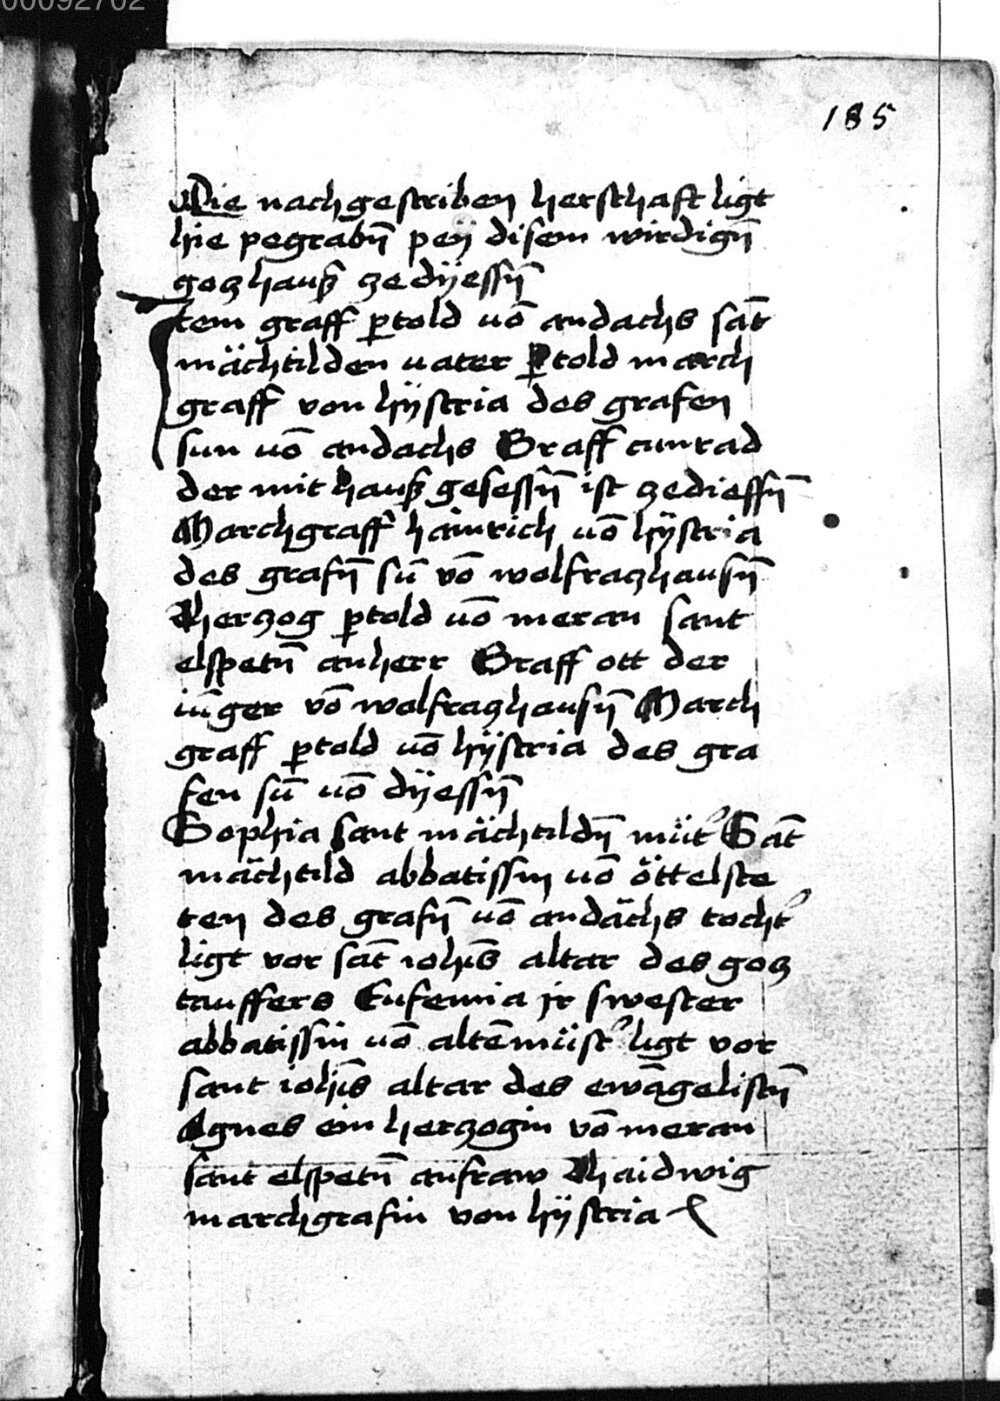 00092762
185
Die nachgescriben herschaft ligt
hie pegrabn̄ peÿ disem wirdign̄
goczhauß ze dÿessn̄
Item graff ꝑtold vō andachs sāt
mächtilden vater ꝑtold march
graff von hÿstria des grafen
sun vō andachs Graff cunrad
der mit hauß gesessn̄ ist ze diessn̄
Marchgraff hainrich vō hÿstria
des grafn̄ sū vō wolfraczhausn̄
Herczog ꝑtold vō meran sant
elspetn̄ anherr Graff ott der
iūger vō wolfraczhausn̄ March
graff ꝑtold vō hÿstria des gra
fen sū vō dÿessn̄
Sophia sant mächtildn̄ müt' Sāt
mächtild abbatissin vō öttelste
ten des grafn̄ vō andächs tocht'
ligt vor sāt iohn̄s altar des gocz
tauffers Eufemia jr swester
abbatissin vō altēmüst' ligt vor
sant iohn̄s altar des ewāgelistn̄
Agnes ein herczogin vō meran
sant elspetn̄ anfraw Haidwig
marchgrafin von hÿstria